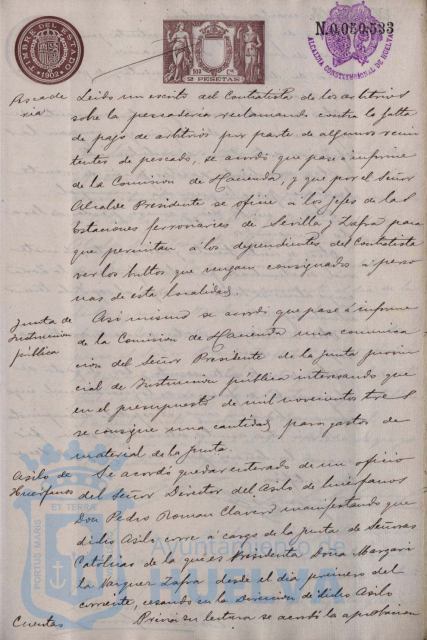 TIMBRE DEL ESTADO
1902
2 PESETAS
N.0,050,533
ALCALDIA CONSTITUCIONAL DE HUELVA
Pescade
ria
Leido un escrito del Contratista de los arbitrios
sobre la pescaderia reclamando contra la falta
de pago de arbitrios por parte de algunos remi
tentes de pescado, se acordó que pase á informe
de la Comision de Hacienda, y que por el Señor
Alcalde Presidente se oficie á los jefes de las
Estaciones ferroviarias de Sevilla y Zafra para
que permitan á los dependientes del Contratista
ver los bultos que vengan consignados á perso
nas de esta localidad.
Junta de
Instruccion
pública
Asi mismo se acordó que pase á informe
de la Comision de Hacienda una comunica
cion del Señor Presidente de la Junta provin
cial de Instruccion pública interesando que
en el presupuesto de mil novecientos tres
se consigne una cantidad para gastos de
material de la Junta.
Asilo de
Huerfanos
Se acordó quedar enterado de un oficio
del Señor Director del Asilo de huerfanos
Don Pedro Roman Clavero manifestando que
dicho Asilo corre á cargo de la Junta de Señoras
Católicas de la que es Presidenta Doña Margari
ta Vazquez Zafra desde el dia primero del
corriente, cesando en la Direccion de dicho Asilo
Cuentas
Previa su lectura se acordó la aprobacion
PORTUS MARIS
ET TERRAE
Ayuntamiento de
HUELVA